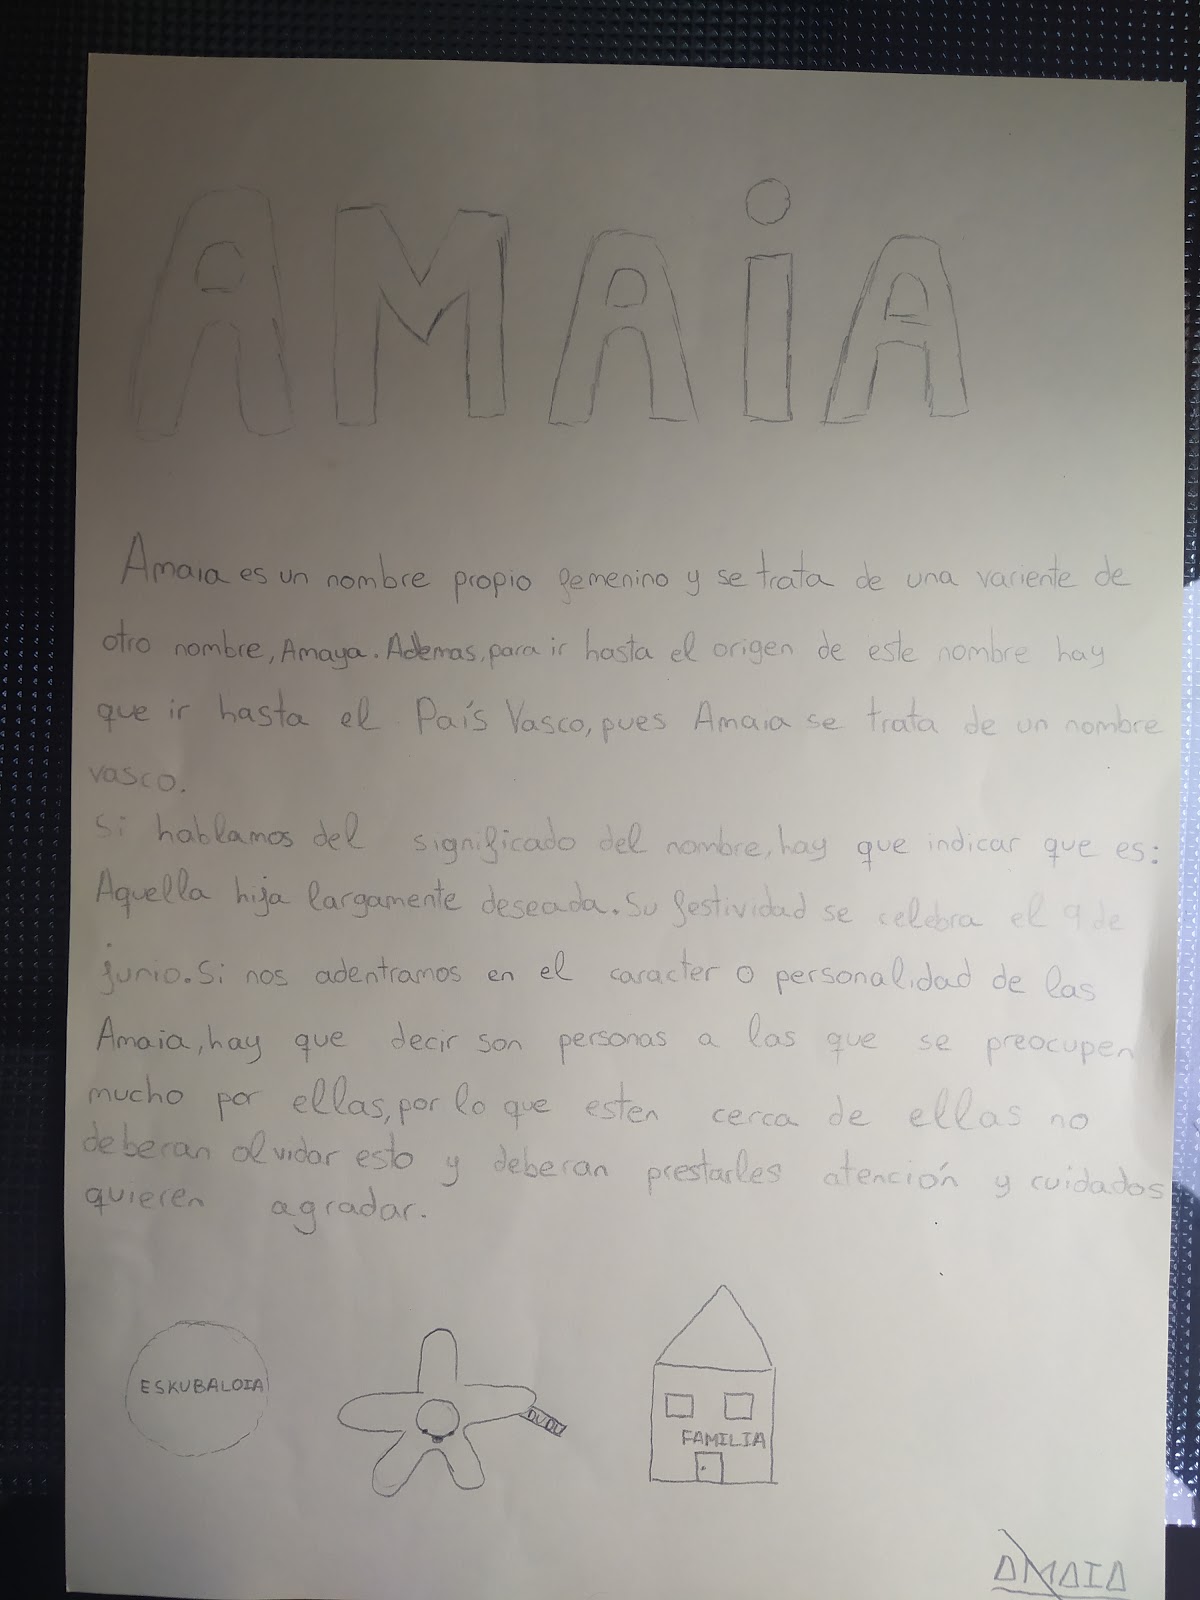 AMAiA
Amaia es un nombre propio femenino y se trata de una variente de
otro nombre, Amaya. Ademas, para ir hasta el origen de este nombre hay
que ir hasta el País Vasco, pues Amaia se trata de un nombre
vasco.
Si hablamos del significado del nombre, hay que indicar que es:
Aquella hija largamente deseada. Su festividad se celebra el 9 de
junio. Si nos adentramos en el caracter o personalidad de las
Amaia, hay que decir son personas a las que se preocupen
mucho por ellas, por lo que esten cerca de ellas no
deberan olvidar esto y deberan prestarles atención y cuidados
quieren agradar.
ESKUBALOIA
FAMILIA
AMAIA